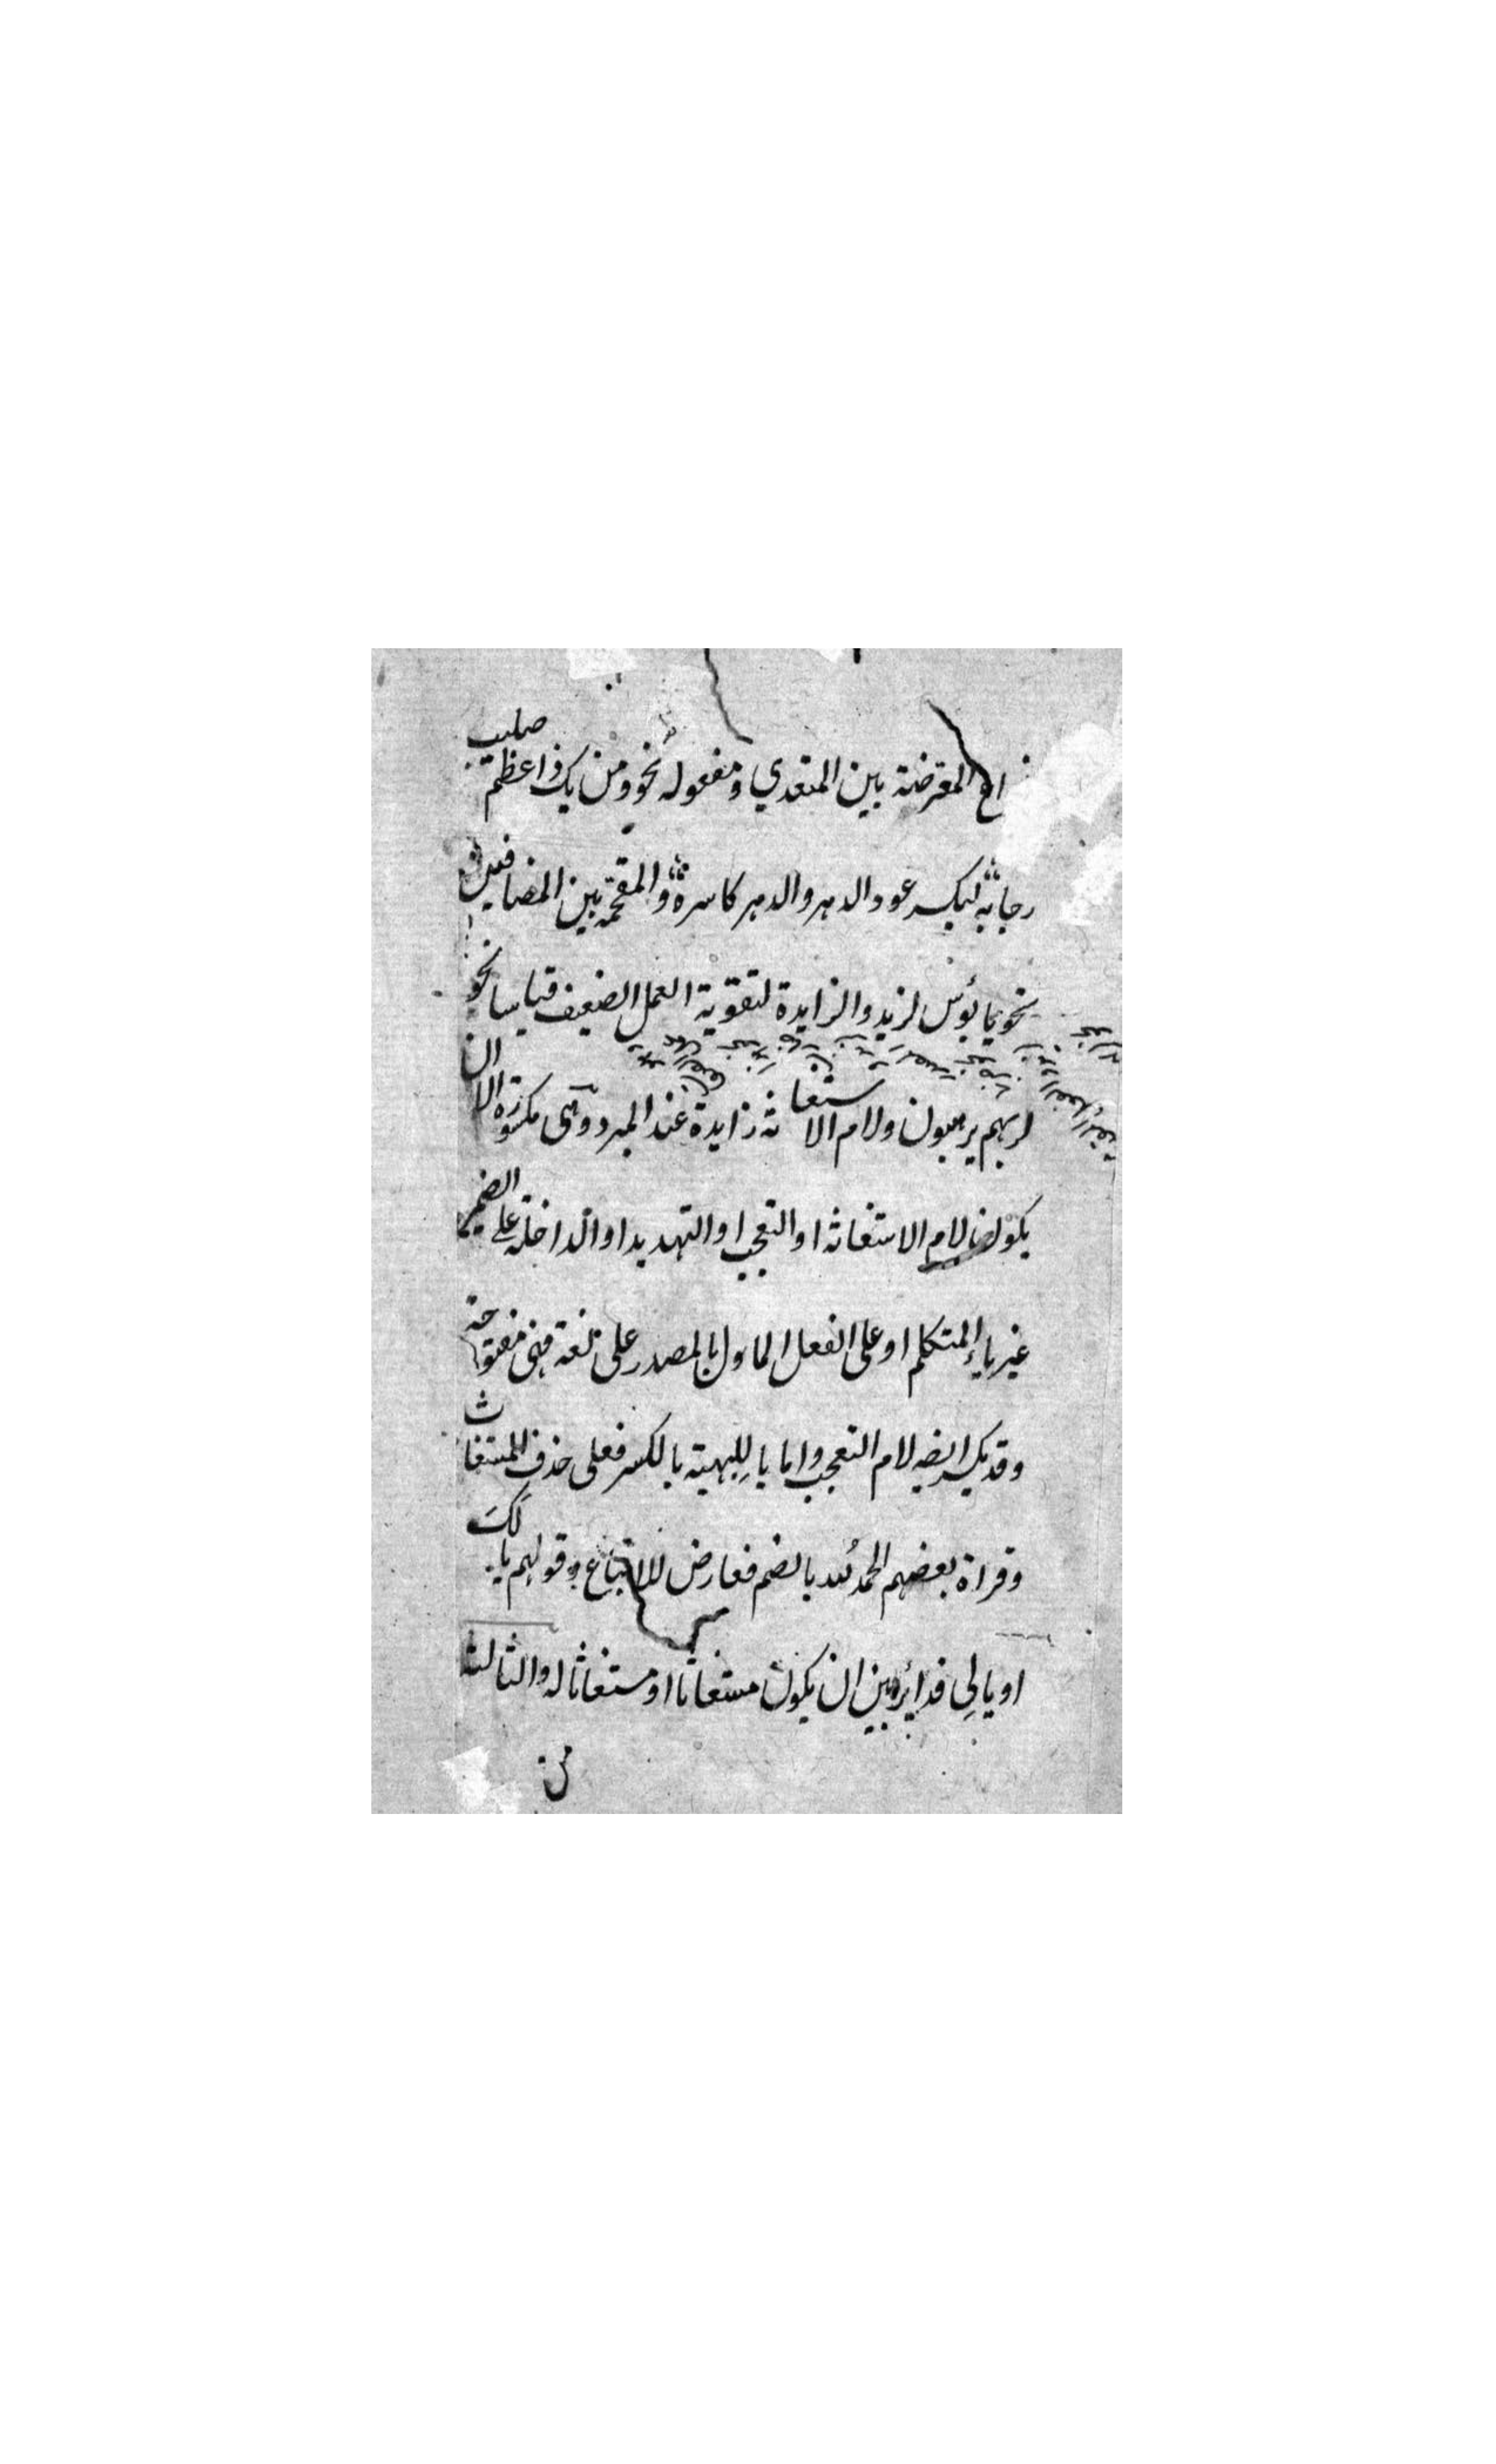 المقرضة بين المتعدي ومفعوله نحو ومن يك ذا عظم صليب
رجا به ليكسر عود الدهر والدهر كاسره والمقحمة بين المضافين
نحو يا بؤس لزيد والزايدة لتقوية العمل الضعيف قياسا نحو
لربهم يرهبون ولام الاستغاثة زايدة عند المبرد وهى مكسورة الا ان
يكون لام الاستغاثة او التعجب او التهديد او الداخلة على الضمير
غير ياء المتكلم او على الفعل الماول بالمصدر على لغة فهى مفتوحة
وقد يكسر ايضه لام التعجب واما يا لِلبهيتة بالكسر فعلى حذف المستغاث
وقراة بعضهم الحمد لُله بالضم فعارض للاتباع وقولهم يا لَكَ
او يا لِى فدائر بين ان يكون مستغاثا او مستغاثا له والثالث
من